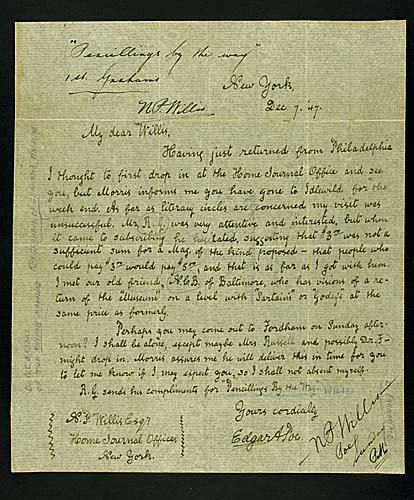 "Pencillings by the way"
1st. Grahams
New York,
N P Willis Dec 7. '47.
My dear Willis,
Having just returned from Philadelphia
I thought to first drop in at the Home Journal Office and see
you, but Morris informs me you have gone to Idlewild for the
week end. As far as literary circles are concerned my visit was
unsuccessful. Mr. R.G. was very attentive and interested, but when
it came to subscribing he hesitated, suggesting that $3 was not a
sufficient sum for a Mag. of the kind proposed - that people who
could pay $3 would pay $5, and that is as far as I got with him.
I met our old friend, of Baltimore, who has visions of a re-
turn of the "Museum" on a level with Sartain's or Godey's at the
same price as formerly.
Perhaps you may come to Fordham on Sunday after-
noon? I shall be alone, except maybe Mrs Russell and possibly Dr. F-
might drop in. Morris assures me he will deliver this in time for you
to let me know if I may expect you, so I shall not absent myself.
R.G. sends his compliments for Pencillings By the Way.
Yours cordially
Edgar A Poe.
N. P. Willis Esqr
Home Journal Office
New York.
N P Willis
Poe